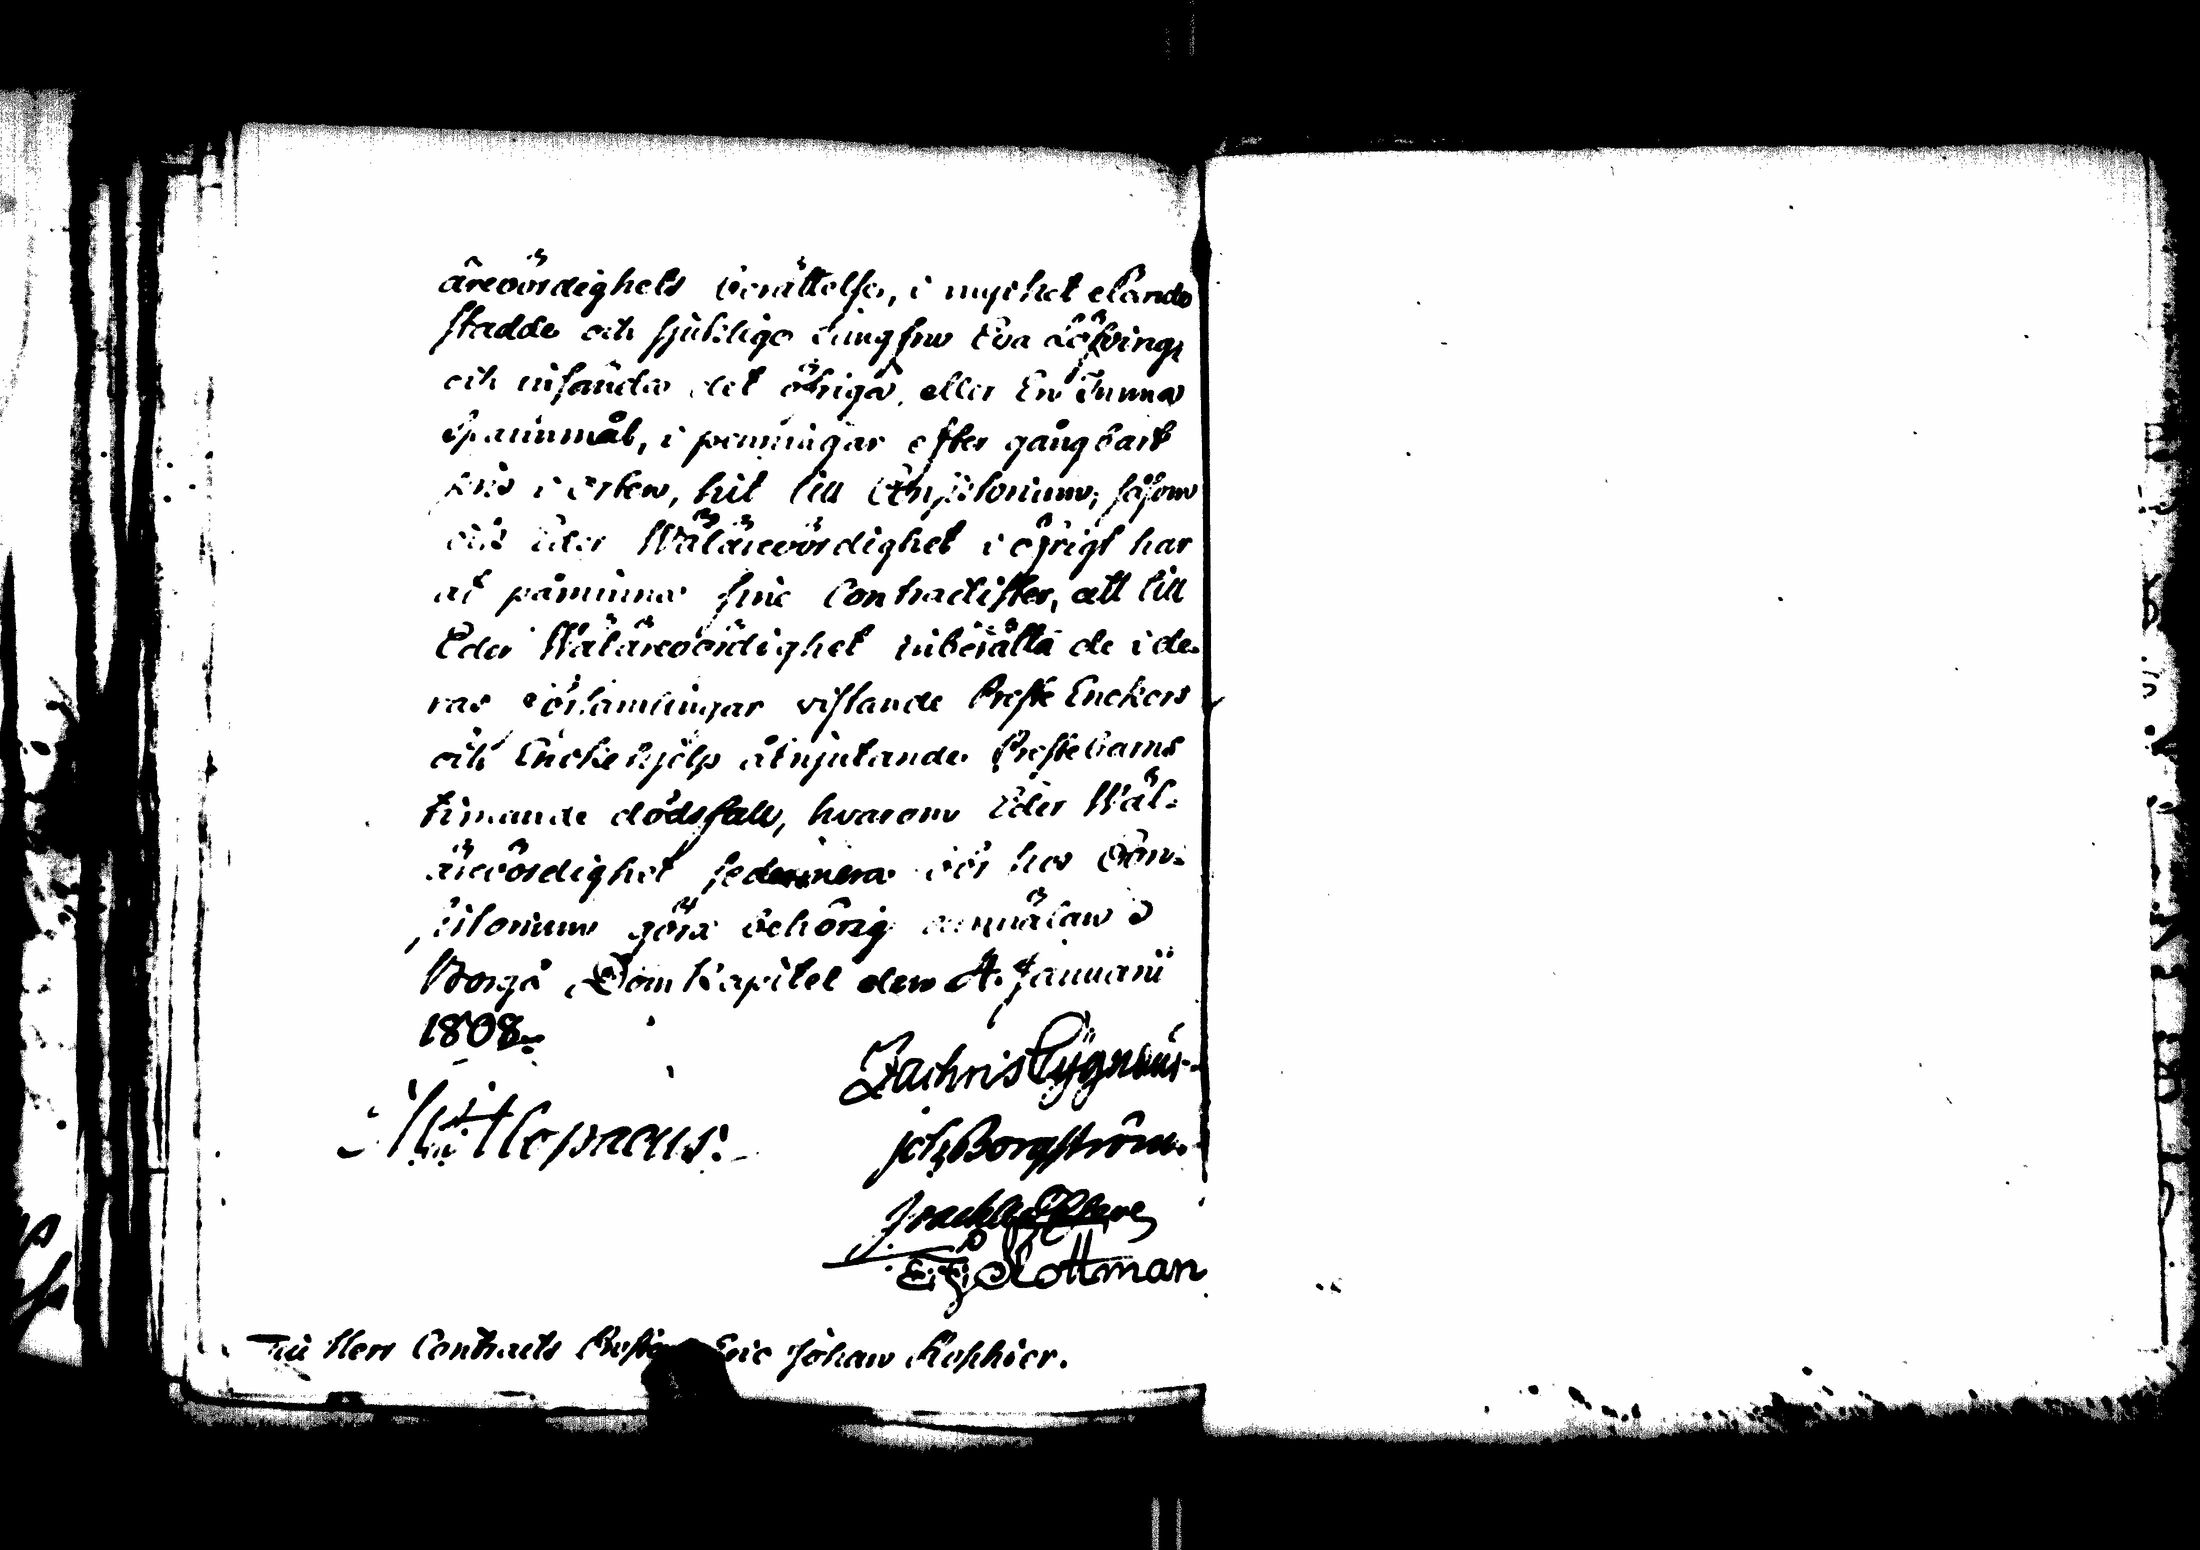 ärevördighets berättelse, i mycket elände
stadde och sjuklige Jungfru Eva Löfving,
och insända det öfriga, eller En Tunna
Spannmål, i penningar efter gångbart
pris i orten, hit till Consistorium; såsom
och Eder Wälärevördighet i öfrigt har
at påminna sine Contractister, att till
Eder Wälärevördighet inberätta de i de-
ras Församlingar vistande Preste Enckors
och Enckehjelp åtnjutande Prestebarns
timande dödsfall, hvarom Eder Wäl-
ärevördighet sedermera bör hos Con-
sistorium göra behörig anmälan
Borgå DomKapitel den 4. Januarii
1808.
Zachris Cygnæus.
Alopaeus.
Joh. Borgström.
E. G. Rottman
Till Herr Contracts Eric Johan